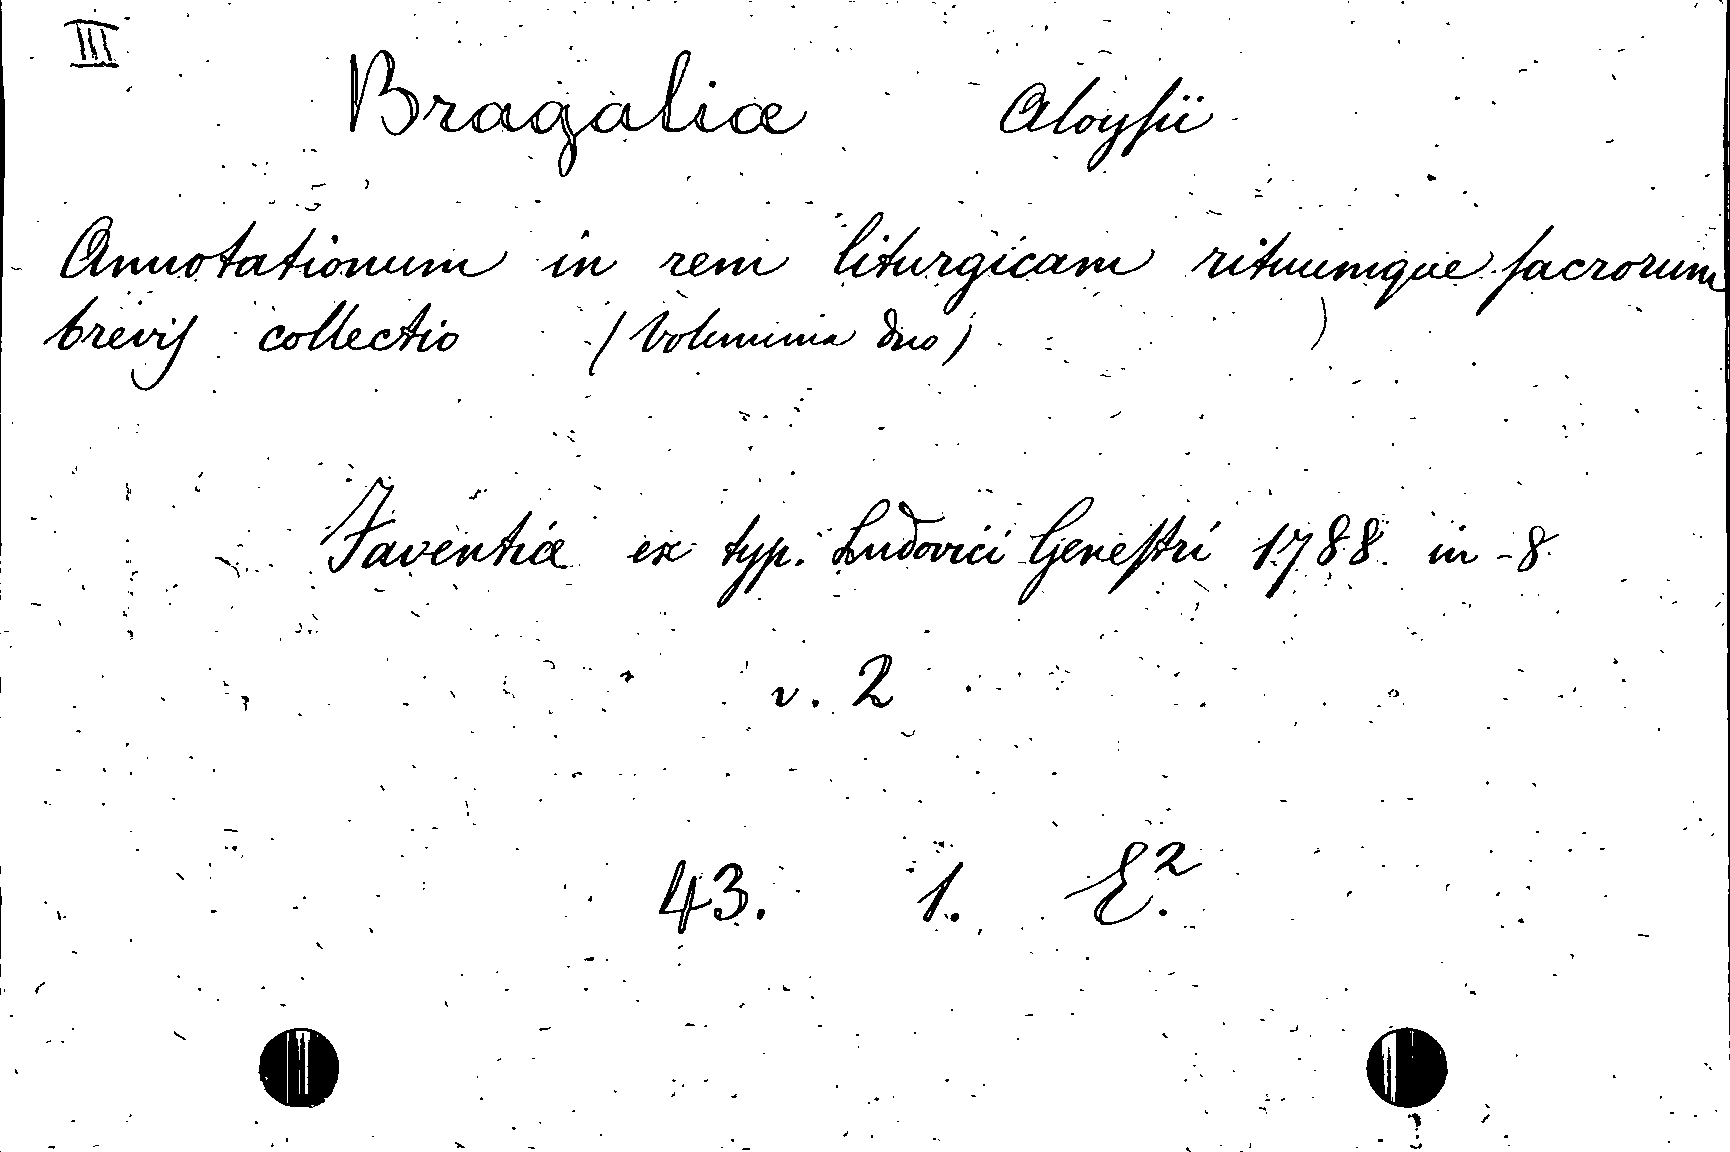 III
Bragaliæ Aloysii
Annotationum in rem liturgicam rituumque sacrorum
brevis collectio (Volumina duo)
Faventiæ ex typ. Ludovici Genestri 1788. in-8.
v. 2
43. 1. E.²